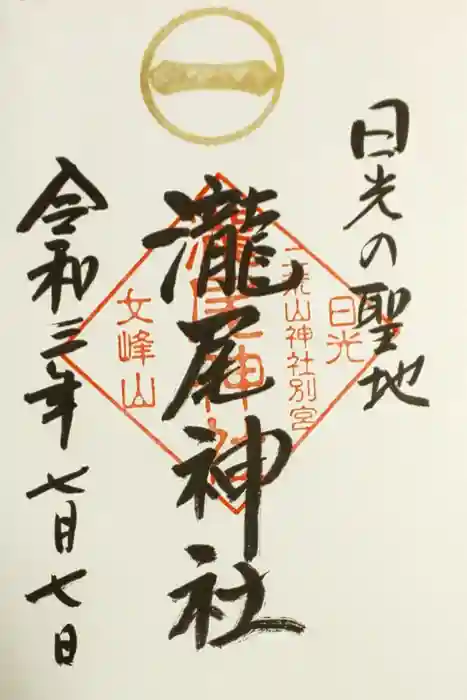 日光の聖地
瀧尾神社
令和三年七月七日
日光
二荒山神社別宮
瀧尾神社
女峰山